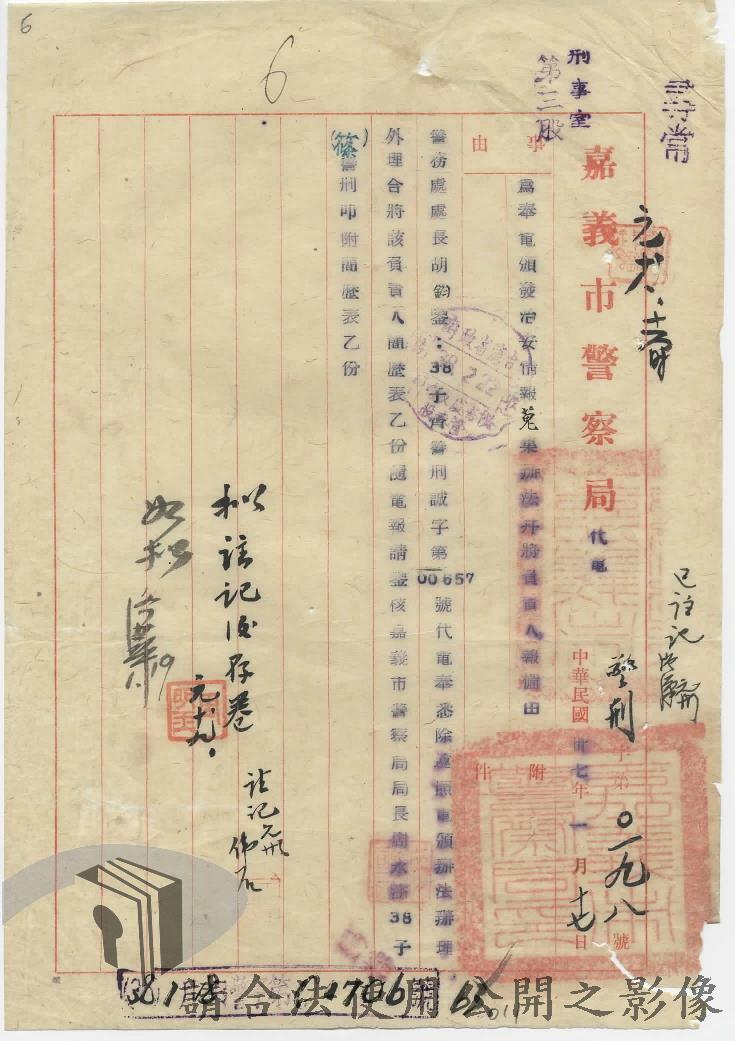 6
6
刑事室
第三股
嘉義市警察局
代電
中華民國卅七年一月十七日
警刑字第〇一九八號
附件
事由
為奉電頒發治安情報蒐集辦法并將負責人報備由
警務處處長胡鈞鑒:38子
警刑誠字第00657號代電奉悉除遵照電頒辦法辦理
外理合將該負責人簡歷表乙份隨電報請鑒核嘉義市警察局局長周38子
(篠)警刑叩附簡歷表乙份
擬註記後存卷
元.十九.
如擬
1.19
註記
已註記
381
1706
請合法使用公開之影像